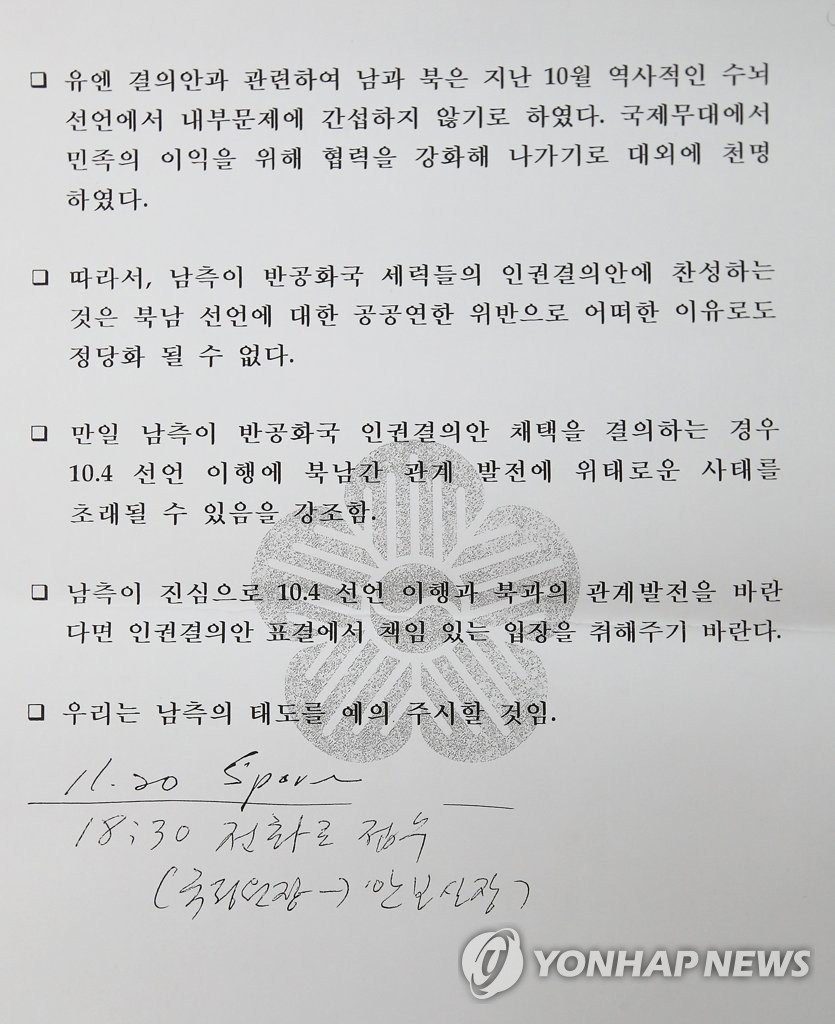 ❏ 유엔 결의안과 관련하여 남과 북은 지난 10월 역사적인 수뇌
선언에서 내부문제에 간섭하지 않기로 하였다. 국제무대에서
민족의 이익을 위해 협력을 강화해 나가기로 대외에 천명
하였다.
❏ 따라서, 남측이 반공화국 세력들의 인권결의안에 찬성하는
것은 북남 선언에 대한 공공연한 위반으로 어떠한 이유로도
정당화 될 수 없다.
❏ 만일 남측이 반공화국 인권결의안 채택을 결의하는 경우
10.4 선언 이행에 북남간 관계 발전에 위태로운 사태를
초래될 수 있음을 강조함.
❏ 남측이 진심으로 10.4 선언 이행과 북과의 관계발전을 바란
다면 인권결의안 표결에서 책임 있는 입장을 취해주기 바란다.
❏ 우리는 남측의 태도를 예의 주시할 것임.
11.20
18:30 전화로 접수
(국정원장→안보실장)
YONHAP NEWS